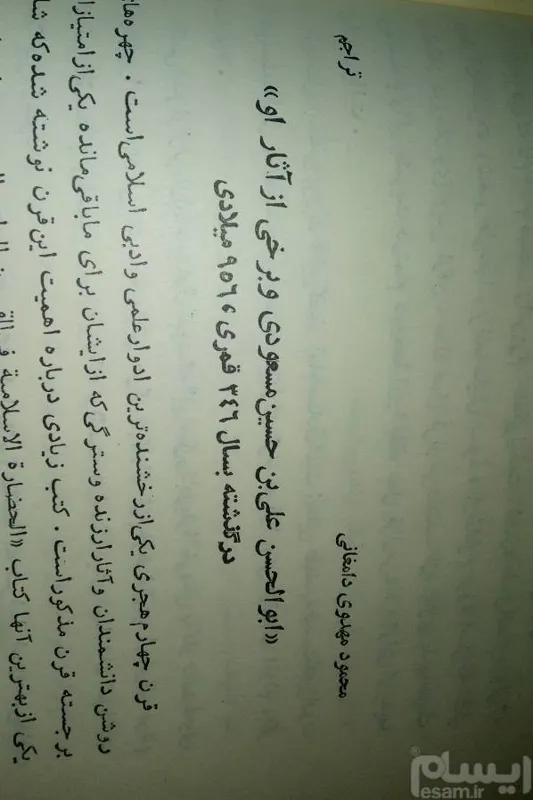 تراجم
محمود مهدوی دامغانی
«ابوالحسن علی‌بن حسین مسعودی و برخی از آثار او»
درگذشته بسال ۳٤٦ قمری، ۹٥٦ میلادی
قرن چهارم هجری یکی از رخشنده‌ترین ادوار علمی و ادبی اسلامی است. چهره‌های
روشن دانشمندان و آثار ارزنده و سترگی که از ایشان برای ما باقی مانده یکی از امتیازات
برجسته قرن مذکور است. کتب زیادی درباره اهمیت این قرن نوشته شده که شا
یکی از بهترین آنها کتاب «الحضارة الاسلامیة فی القرن
ایسام
esam.ir